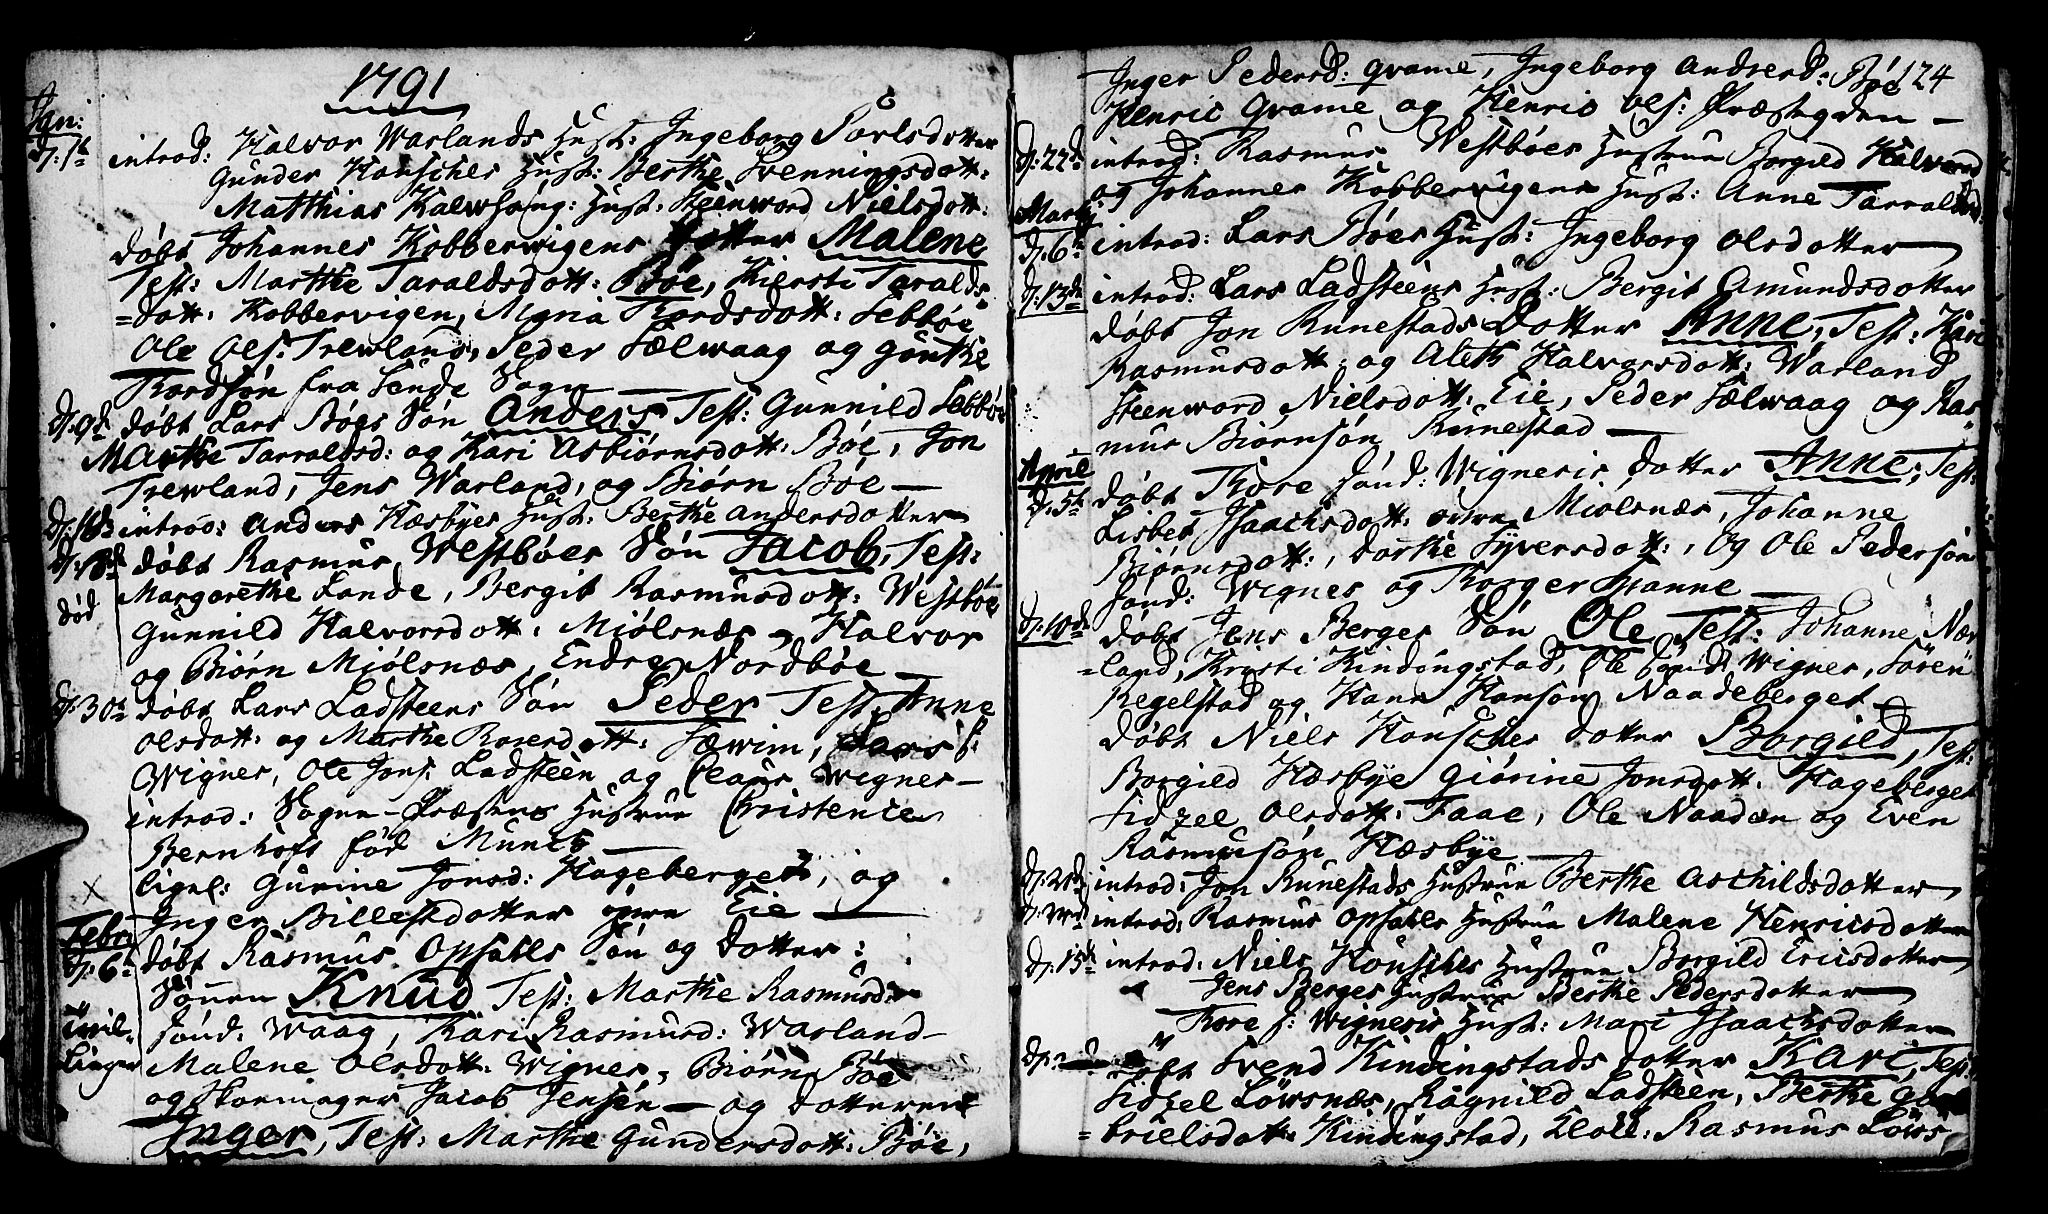 1791
Jan:
d: 1te introd: Halvor Warlands Hust: Ingeborg Poulsdotter
Gunder Houschers Hust: Berthe Svenningsdott:
Matthias Kalwshaug: Hust: Steenword Nielsdott:
døbt Johannes Kobbervigens dotter Malene
Test: Marthe Taraldsdott: Bøe, Kiersti Taralds
=dott: Kobbervigen, Thordsdott: Sebbøe
Ole Ols: Trewland, Peder Sælwaag og Gunthe
Thordsøn fra Sende Sogn
d: 9de døbt Lars Bøes Søn Anders Test: Gunnild Sebbøe
Marthe Tarraldsd: og Kari Asbiørnsdott: Bøe, Jon
Trewland, Jens Warland, og Biørn Bøe —
d: 16de introd: Anders Hæsbyes Hust: Berthe Andersdotter
døbt Rasmus Westbøes Søn Jacob, Test:
død Margarethe Lande, Bergit Rasmusdott: Westbøe
Gunnild Halvorsdott: Miølsnæs, Halvor
og Biørn Miølsnæs, Endre Nordbøe —
d: 30te døbt Lars Ladsteens Søn Peder Test: Anne
Olsdott: og Marthe Rosersdott: Sæwim, Lars S:
Wignes, Ole Jons: Ladsteen og Claus Wignes —
introd: Sogne-Præstens Hustrue Christence
Bernhoft fød Munch —
× ligel: Gurine Jonsd: Hageberget, og
Inger Billesdotter øvre Eie —
Febr:
d: 6te døbt Rasmus Opsalls Søn og dotter:
Sønnen Knud Test: Marthe Rasmusd:
tvil- sønd: Waag, Kari Rasmusd: Warland —
linger Malene Olsdott: Wignes, Biørn Bøe
og Skoemager Jacob Jensen — og dotteren
Inger, Test: Marthe Gundersdott: Bøe,
Inger Pedersd: Qvame, Ingeborg Andersd: Bøe 124
Henric Qvame og Henric Ols: Præstegden —
d: 22de introd: Rasmus Westbøes Hustrue Borgild Halvorsd
og Johannes Kobbervigens Hust: Anne Tarraldsd:
Martij
d: 6te introd: Lars Bøes Hust: Ingeborg Olsdotter
d: 13de introd: Lars Ladsteens Hust: Bergit Amundsdotter
døbt Jon Runestads Dotter Anne, Test: Kari
Rasmusdott: og Aleth Halvorsdott: Warland
Steenword Nielsdott: Eie, Peder Sælwaag og Ras=
mus Biørnsøn Runestad —
April
d: 5te døbt Thore sønd: Wigneses dotter Anne, Test:
Lisbet Isaachsdott: øvre Miølsnæs, Johanne
Biørnsdott:, Dorthe Syversdott:, og Ole Pedersøn
sønd: Wignes og Thorger Svanne —
d: 10de døbt Jens Berges Søn Ole Test: Johanne Nær
=land, Kristi Kindingstad, Ole sønd: Wignes, Søren
Regelstad og Hans Hansøn Naadeberget —
døbt Niels Houschers dotter Borgild, Test:
Borgild Hæsbye Giørine Jonsdott: Hageberget
Sidzel Olsdott: Faae, Ole Naaden og Even
Rasmusøn Hæsbye
introd: Jon Runestads Hustrue Berthe Aschildsdotter
introd: Rasmus Opsalls Hustrue Malene Henricsdotter
d: 15de introd: Niels Houschers Hustrue Borgild Ericsdotter
Jens Berges Hustrue Berthe Pedersdotter
Thore S: Wigneses Hust: Mari Isaachsdotter
døbt Svend Kindingstads dotter Kari, Test:
Sidzel Løwsnæs, Ragnild Ladsteen, Berthe Ga=
=brielsdott: Kindingstad, Rasmus Løws